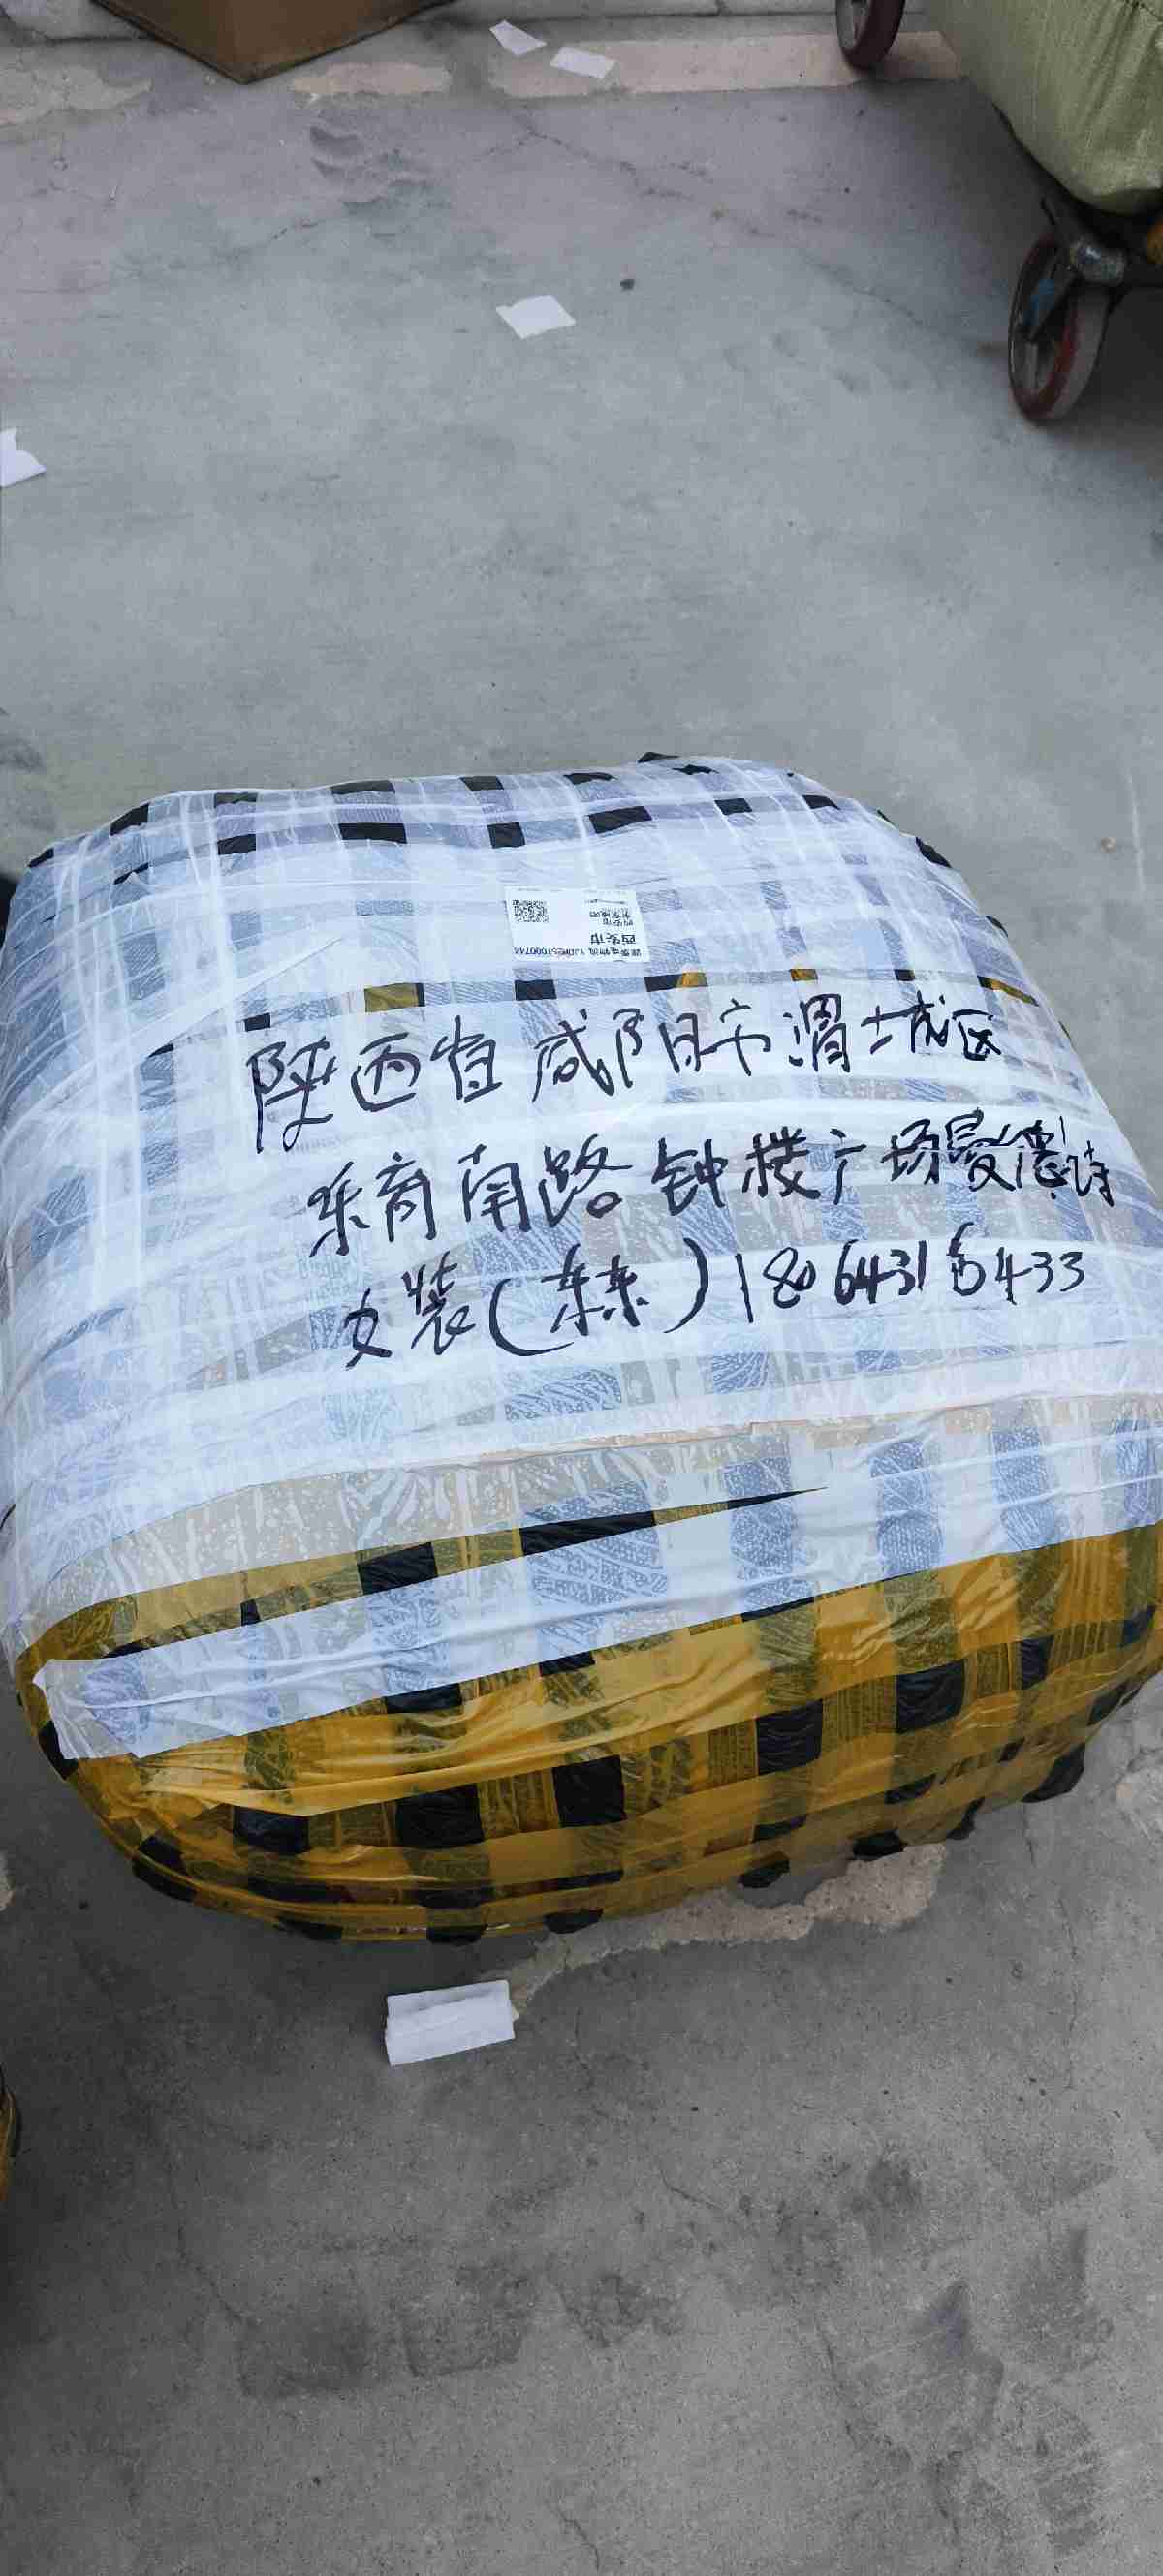 西安市
陕西省咸阳市渭城区
乐育南路钟楼广场曼德诗
女装(东东)18064316433